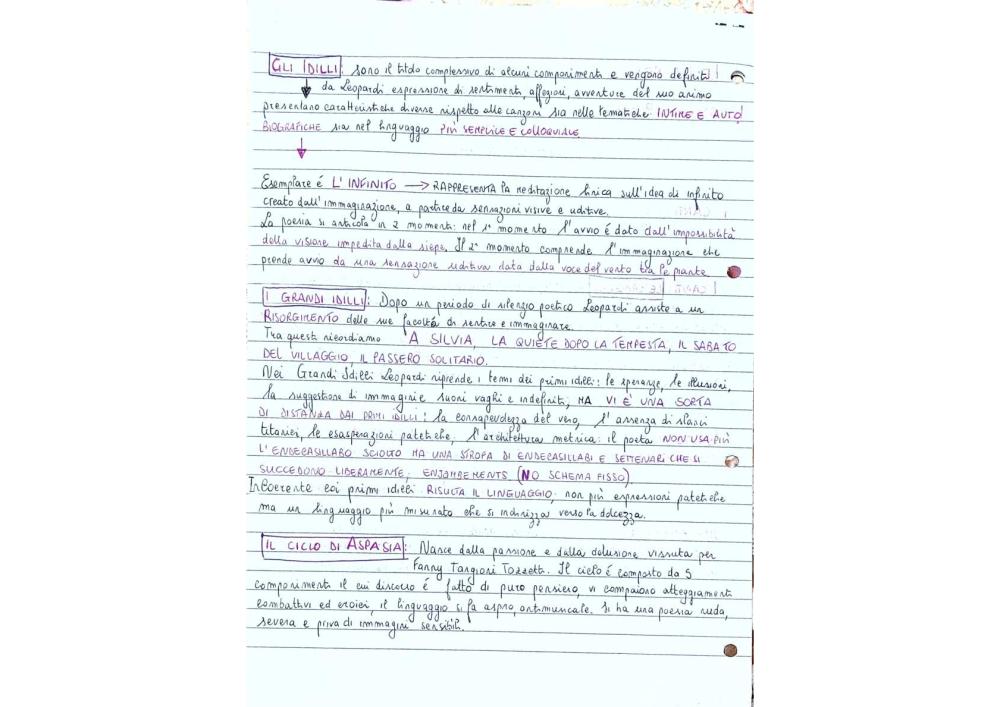 GLI IDILLI: sono il titolo complessivo di alcuni componimenti e vengono definiti
da Leopardi espressione di sentimenti, affezioni, avventure del suo animo
presentano caratteristiche diverse rispetto alle canzoni sia nelle tematiche INTIME E AUTO
BIOGRAFICHE sia nel linguaggio PIÙ SEMPLICE E COLLOQUIALE
Esemplare é L'INFINITO → RAPPRESENTA la meditazione lirica sull'idea di infinito
creato dall'immaginazione, a partire da sensazioni visive e uditive.
La poesia si articola in 2 momenti: nel 1° momento l'avvio é dato dall'impossibilità
della visione impedita dalla siepe. Il 2° momento comprende l'immaginazione che
prende avvio da una sensazione uditiva data dalla voce del vento tra le piante
I GRANDI IDILLI: Dopo un periodo di silenzio poetico Leopardi assiste a un
RISORGIMENTO delle sue facoltà di sentire e immaginare.
Tra questi ricordiamo A SILVIA, LA QUIETE DOPO LA TEMPESTA, IL SABATO
DEL VILLAGGIO, IL PASSERO SOLITARIO.
Nei Grandi Idilli Leopardi riprende i temi dei primi idilli: le speranze, le illusioni,
la suggestione di immagini e suoni vaghi e indefiniti, MA VI É UNA SORTA
DI DISTANZA DAI PRIMI IDILLI: la consapevolezza del vero, l'assenza di slanci
titanici, le esasperazioni patetiche, l'architettura metrica: il poeta NON USA PIÙ
L'ENDECASILLABO SCIOLTO MA UNA STROFA DI ENDECASILLABI E SETTENARI CHE SI
SUCCEDONO LIBERAMENTE, ENJAMBEMENTS (NO SCHEMA FISSO)
Incoerente coi primi idilli RISULTA IL LINGUAGGIO: non più espressioni patetiche
ma un linguaggio più misurato che si indirizza verso la dolcezza.
IL CICLO DI ASPASIA: Nasce dalla passione e dalla delusione vissuta per
Fanny Targioni Tozzetti. Il ciclo é composto da 5
componimenti il cui discorso é fatto di puro pensiero, vi compaiono atteggiamenti
combattivi ed eroici, il linguaggio si fa aspro, antimusicale. Si ha una poesia nuda,
severa e priva di immagini sensibili.